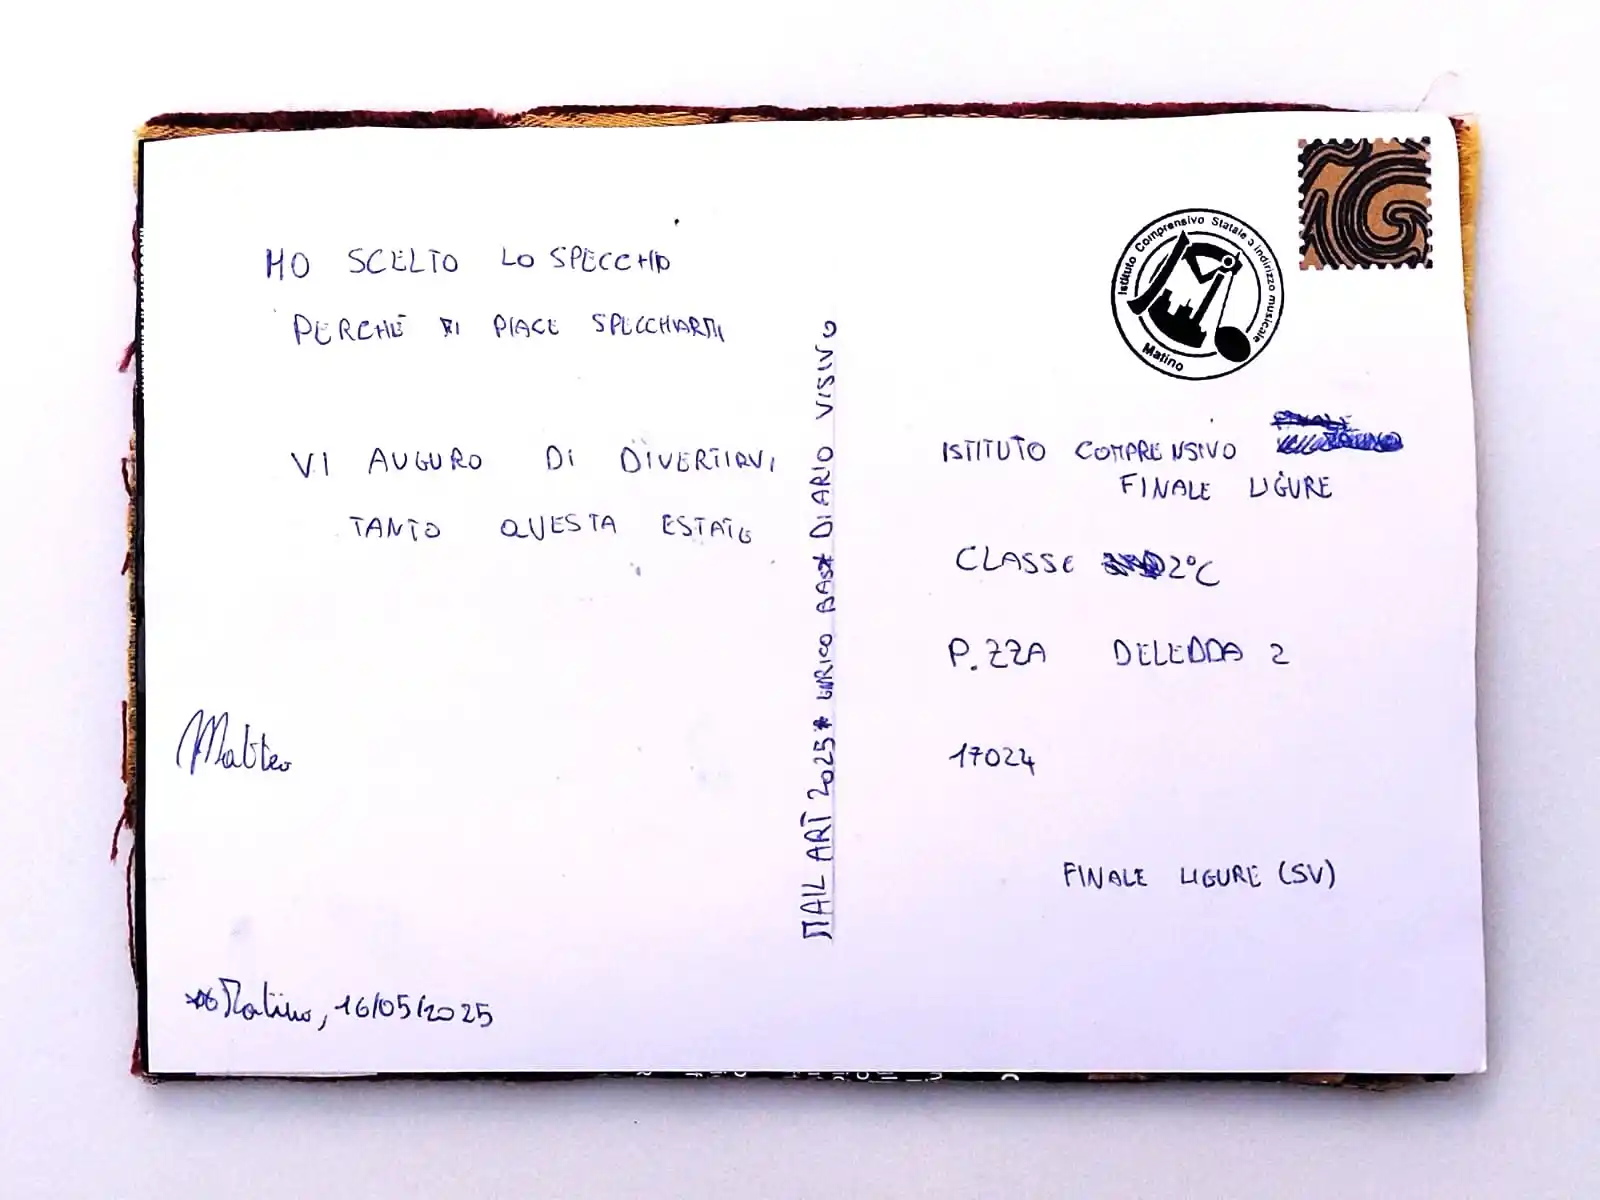 HO SCELTO LO SPECCHIO
PERCHÉ MI PIACE SPECCHIARMI
VI AUGURO DI DIVERTIRVI
TANTO QUESTA ESTATE
Matteo
Matino, 16/05/2025
MAIL ART 2025* ENRICO BAJ* DIARIO VISIVO
Istituto Comprensivo Statale a indirizzo musicale
Matino
ISTITUTO COMPRENSIVO
FINALE LIGURE
CLASSE 2°C
P.ZZA DELEDDA 2
17024
FINALE LIGURE (SV)